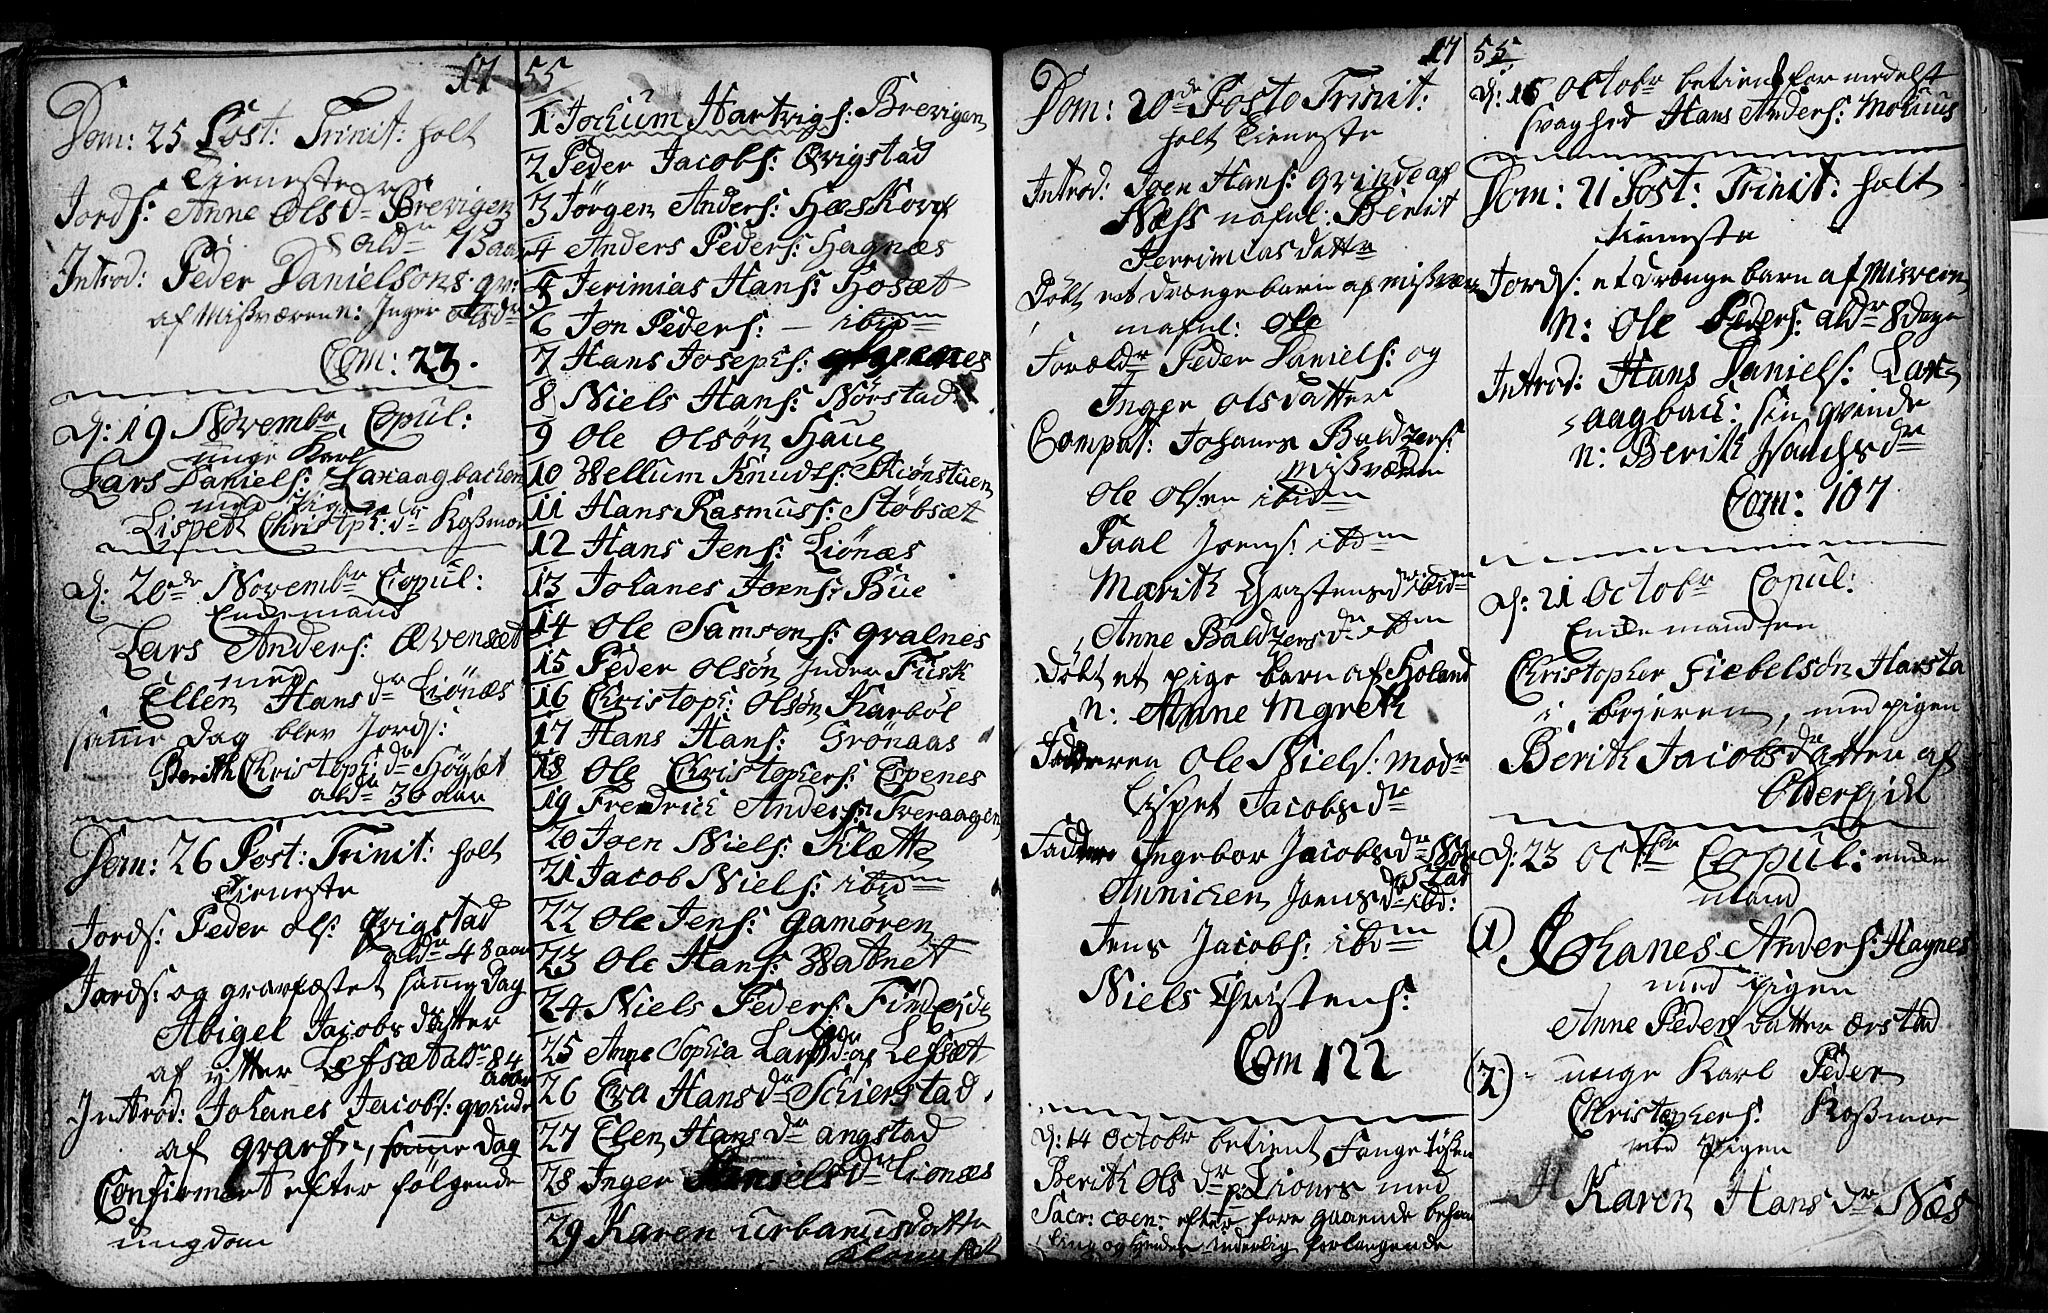 17
Dom: 25 Post: Trinit: holt
Tieneste
Jords: Anne Olsdr Brevigen
ald: 13 aar
Introd: Peder Danielsons qv:
af Misværen n: Inger Olsdr
Com: 23.
d: 19 Novembr Copul:
unge Karl
Lars Daniels: Laxaagbacken
med Pig
Lispeth Christoph: dr Koßmoe
d: 20de Novembr Copul:
Enckemand
Lars Anders: Evensæt
med
Ellen Hansdr Liønæs
samme dag blev Jords:
Berith Christoph: dr Høgsæt
aldr 30 aar
Dom: 26 Post: Trinit: holt
Tieneste
Jords: Peder Ols: Qvigstad
aldr 48 aar
Jords: og gravfæstet samme dag
Abigel Jacobsdatter
af ytter Lefsæt aldr 84
aar
Introd: Johanes Jacobs: qvinde
af Grarfie, samme dag
Confirmert efter følgende
ungdom
55
1 Jochum Hartvigs: Brevigen
2 Peder Jacobs: Qvigstad
3 Jørgen Anders: Hæskorf
4 Anders Peders: Hagnæs
5 Jerimias Hans: Hosæt
6 Jon Peders: – ibidm
7 Hans Josephs:
8 Niels Hans: Nørstad
9 Ole Olsøn Haug
10 Vellum Knudts: Kiønstuen
11 Hans Rasmuss: Støbsæt
12 Hans Jens: Liønæs
13 Johanes Joens: Bue
14 Ole Samsons: Gvalnes
15 Peder Olsøn Inder Fusk
16 Christoph: Olsøn Karbøl
17 Hans Hans: Grønaas
18 Ole Christophers: Espenes
19 Fredrich Anders: Tveraagen
20 Joen Niels: Klætte
21 Jacob Niels: ibidm
22 Ole Jens: Gamøren
23 Ole Hans: Vatnet
24 Niels Peders:
25 Anne Sophia Larsdr af Lefsæt
26 Eva Hansdr Schierstad
27 Elen Hansdr Angstad
28 Inger Danielsdr Lionæs
29 Karen Urbanusdatter
17
Dom: 20de Posto Trinit:
holt Tieneste
Introd: Joen Hans: qvinde af
Næss nafnl: Berit
Jerrimiasdatter
Døbt et drænge barn af Misvær
nafnl: Ole
Foroldr Peder Daniels: og
Inger Olsdatter
Compat: Johanes Baldzers:
Misværen
Ole Olsen ibidm
Paal Joens: ibidm
Marith Christensdr ibidm
Anne Baldzersdr ibidm
Døbt et pige barn af Holand
N: Anne Mgreth
Fadderen Ole Niels: modr
Lispet Jacobsdr
Faddere Ingebor Jacobsdr Nør
stad
Annichen Joensdr ibd:
Jens Jacobs: ibidm
Niels Christens:
Com 122
d: 14 Octobr betient Fange
Berith Olsdr Lionæs med
Sacr: coen: efter fore gaaende
og hendes inderlig forlangende
55
d: 16 Octobr betient for medelst
svaghed Hans Anders: Molius
Dom: 21 Post: Trinit: holt
tieneste
Jords: et drænge barn af Misveren
N: Ole Peders: aldr 8 dage
Introd: Hans Daniels: Lax
aagback: sin qvinde
n: Berith Isachsdr
Com: 107
d: 21 Octobr Copul:
Enckemanden
Christopher Fiebelsøn Harsta
i Bejeren, med pigen
Berith Jacobsdatter af
d: 23 Octbr Copul: encke
mand
1) Johanes Anders: Hagnes
med pigen
Anne Pedersdatter Ærstad
(2) unge Karl Peder
Christophers: Koßmoe
med Pigen
Karen Hansdr Næs